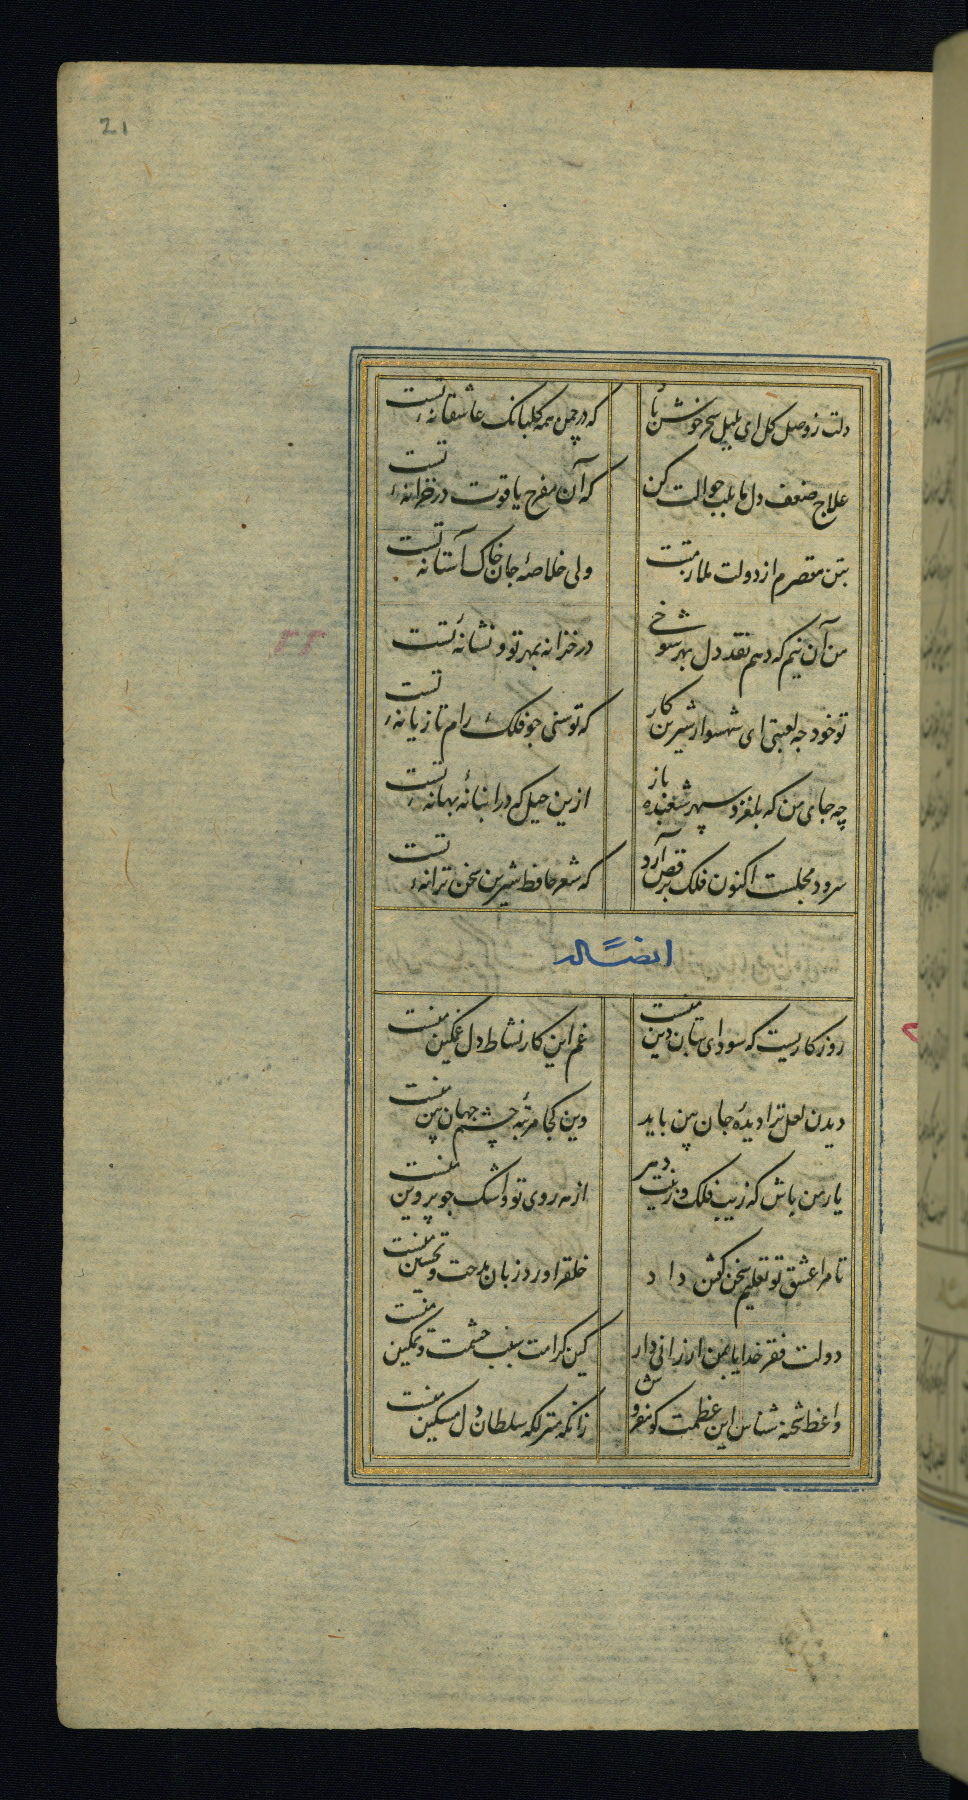 21
دلت ز وصل گل ای بلبل سحر خوش باد
که در چمن همه گلبانگ عاشقانهٔ تست
علاج ضعف دل ما بلب حوالت کن
که آن مفرح یاقوت در خزانهٔ تست
بتن مقصرم از دولت ملازمتت
ولی خلاصهٔ جان خاک آستانهٔ تست
من آن نیم که دهم نقد دل بهر شوخی
در خزانه بمهر تو و نشانهٔ تست
تو خود چه لعبتی ای شهسوار شیرین کار
که توسنی چو فلک رام تازیانهٔ تست
چه جای من که بلغزد سپهر شعبده باز
ازین حیل که در انبانهٔ بهانهٔ تست
سرود مجلست اکنون فلک برقص آرد
که شعر حافظ شیرین سخن ترانهٔ تست
ایضاً له
روزکاریست که سودای بتان دین منست
غم این کار نشاط دل غمگین منست
دیدن لعل ترا دیدهٔ جان بین باید
وین کجا مرتبهٔ چشم جهان بین منست
یار من باش که زیب فلک و زینت دهر
از مه روی تو و اشک چو پروین منست
تا مرا عشق تو تعلیم سخن گفتن داد
خلق را ورد زبان مدحت و تحسین منست
دولت فقر خدایا بمن ارزانی دار
کین کرامت سبب حشمت و تمکین منست
واعظ شحنه شناس این عظمت گو مفروش
زانکه منزلگه سلطان دل مسکین منست